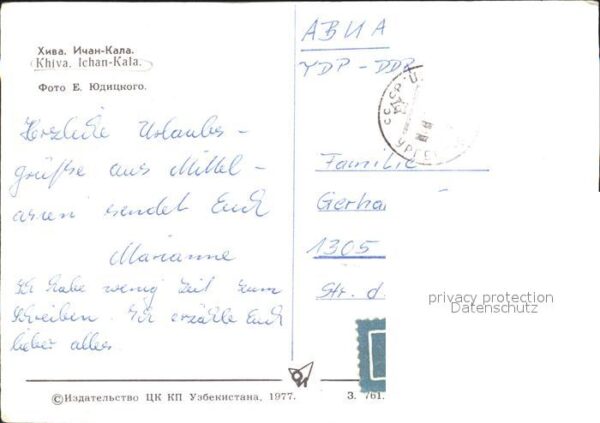 Хива. Ичан-Кала.
Khiva. Ichan-Kala.
Фото Е. Юдицкого.
Herzliche Urlaubs-
grüße aus Mittel-
asien sendet Euch
Marianne
Ich habe wenig Zeit zum
Schreiben. Ich erzähle Euch
lieber alles.
©Издательство ЦК КП Узбекистана, 1977.
З. 761.
АВИА
ГДР - DDR
СССР
УРГЕ
Familie
Gerha
1305
Str. d.
privacy protection
Datenschutz